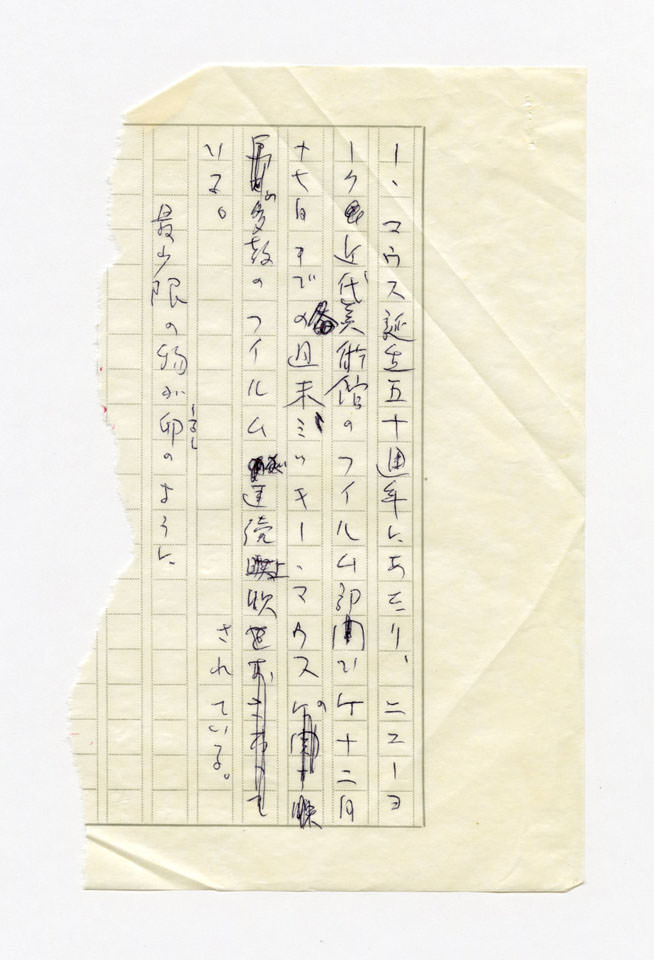 ー、マウス誕生五十週年にあたり、ニューヨ
ーク近代美術館のフイルム部門で十二月
十七日までの週末ミッキー、マウスの
多数のフイルム連続上映
いる。
されている。
最少限の物が卵のように
しるし